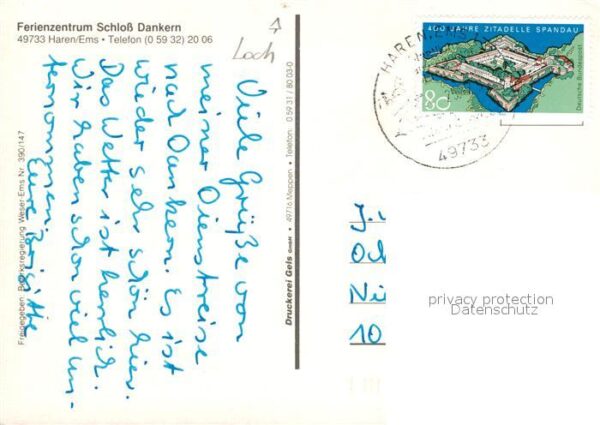 Ferienzentrum Schloß Dankern
49733 Haren/Ems • Telefon (0 59 32) 20 06
Loch
Viele Grüße von
meiner Dienstreise
nach Dankern. Es ist
wieder sehr schön hier.
Das Wetter ist herrlich.
Wir haben schon viel un-
ternommen.
Eure Brigitte
Freigegeben: Bezirksregierung Weser-Ems Nr. 390/147
Druckerei Gels GmbH • 49716 Meppen • Telefon: 0 59 31 / 80 03-0
400 JAHRE ZITADELLE SPANDAU
80
Deutsche Bundespost
HAREN, EMS
49733
10
privacy protection
Datenschutz